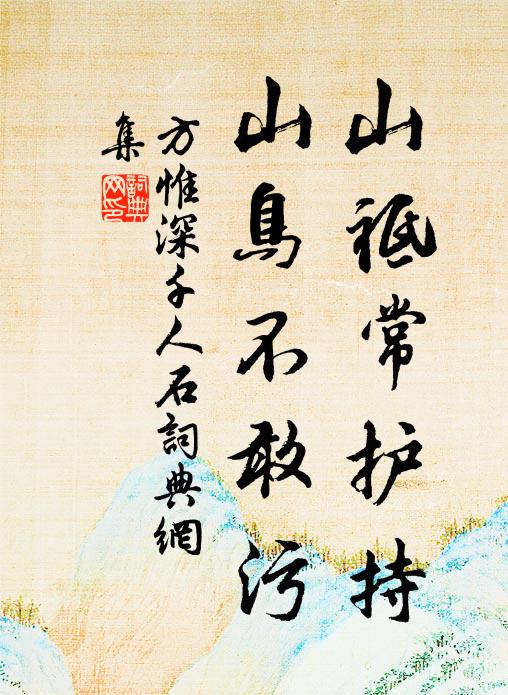 山祗常护持
山鸟不敢污
方惟深千人石詞典網
集
詞典网印